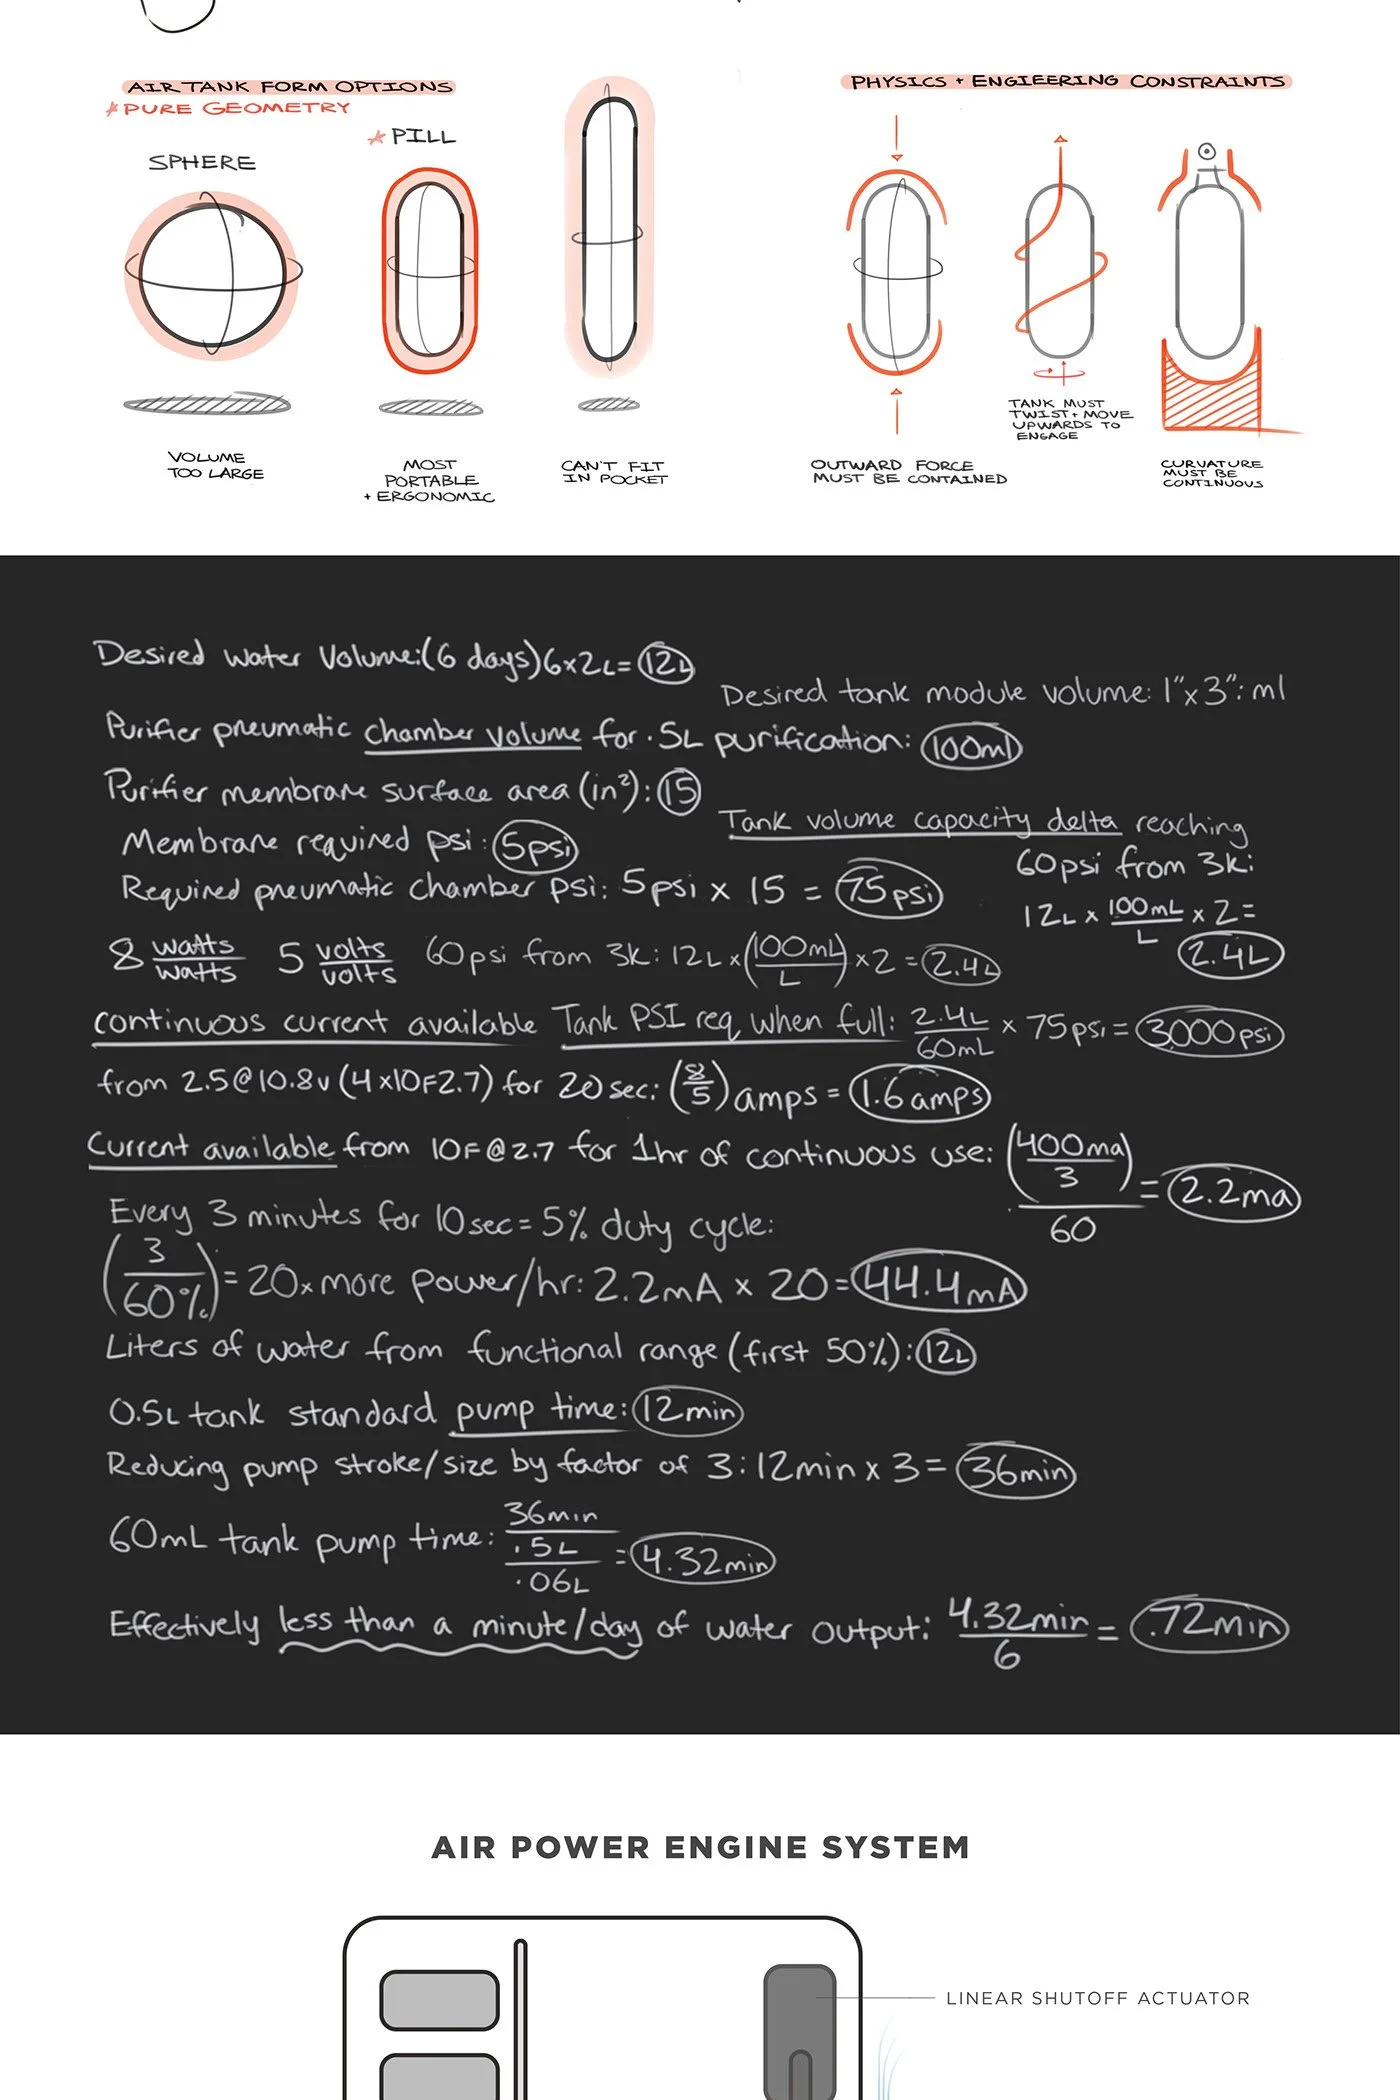 AIR TANK FORM OPTIONS
* PURE GEOMETRY
SPHERE
* PILL
VOLUME
TOO LARGE
MOST
PORTABLE
+ ERGONOMIC
CAN'T FIT
IN POCKET
PHYSICS + ENGIEERING CONSTRAINTS
OUTWARD FORCE
MUST BE CONTAINED
TANK MUST
TWIST + MOVE
UPWARDS TO
ENGAGE
CURVATURE
MUST BE
CONTINUOUS
Desired water Volume:(6 days)6x2L=12L
Desired tank module volume: 1"x3": ml
Purifier pneumatic chamber volume for .5L purification: 100ml
Purifier membrane surface area (in²): 15
Tank volume capacity delta reaching
60psi from 3k:
12L x 100mL/L x 2=
2.4L
Membrane required psi: 5psi
Required pneumatic chamber psi: 5psi x 15 = 75psi
8 watts/watts 5 volts/volts 60psi from 3k: 12L x (100mL/L) x 2 = 2.4L
continuous current available Tank PSI req when full: 2.4L/60mL x 75psi = 3,000psi
from 2.5@10.8v (4x10F2.7) for 20sec: (8/5) amps = 1.6amps
Current available from 10F@2.7 for 1hr of continuous use: (400ma/3)/60 = 2.2ma
Every 3 minutes for 10sec = 5% duty cycle:
(3/60%) = 20x more power/hr: 2.2mA x 20 = 44.4mA
Liters of water from functional range (first 50%): 12L
0.5L tank standard pump time: 12min
Reducing pump stroke/size by factor of 3: 12min x 3 = 36min
60mL tank pump time: 36min/.5L/.06L = 4.32min
Effectively less than a minute/day of water output: 4.32min/6 = .72min
AIR POWER ENGINE SYSTEM
LINEAR SHUTOFF ACTUATOR